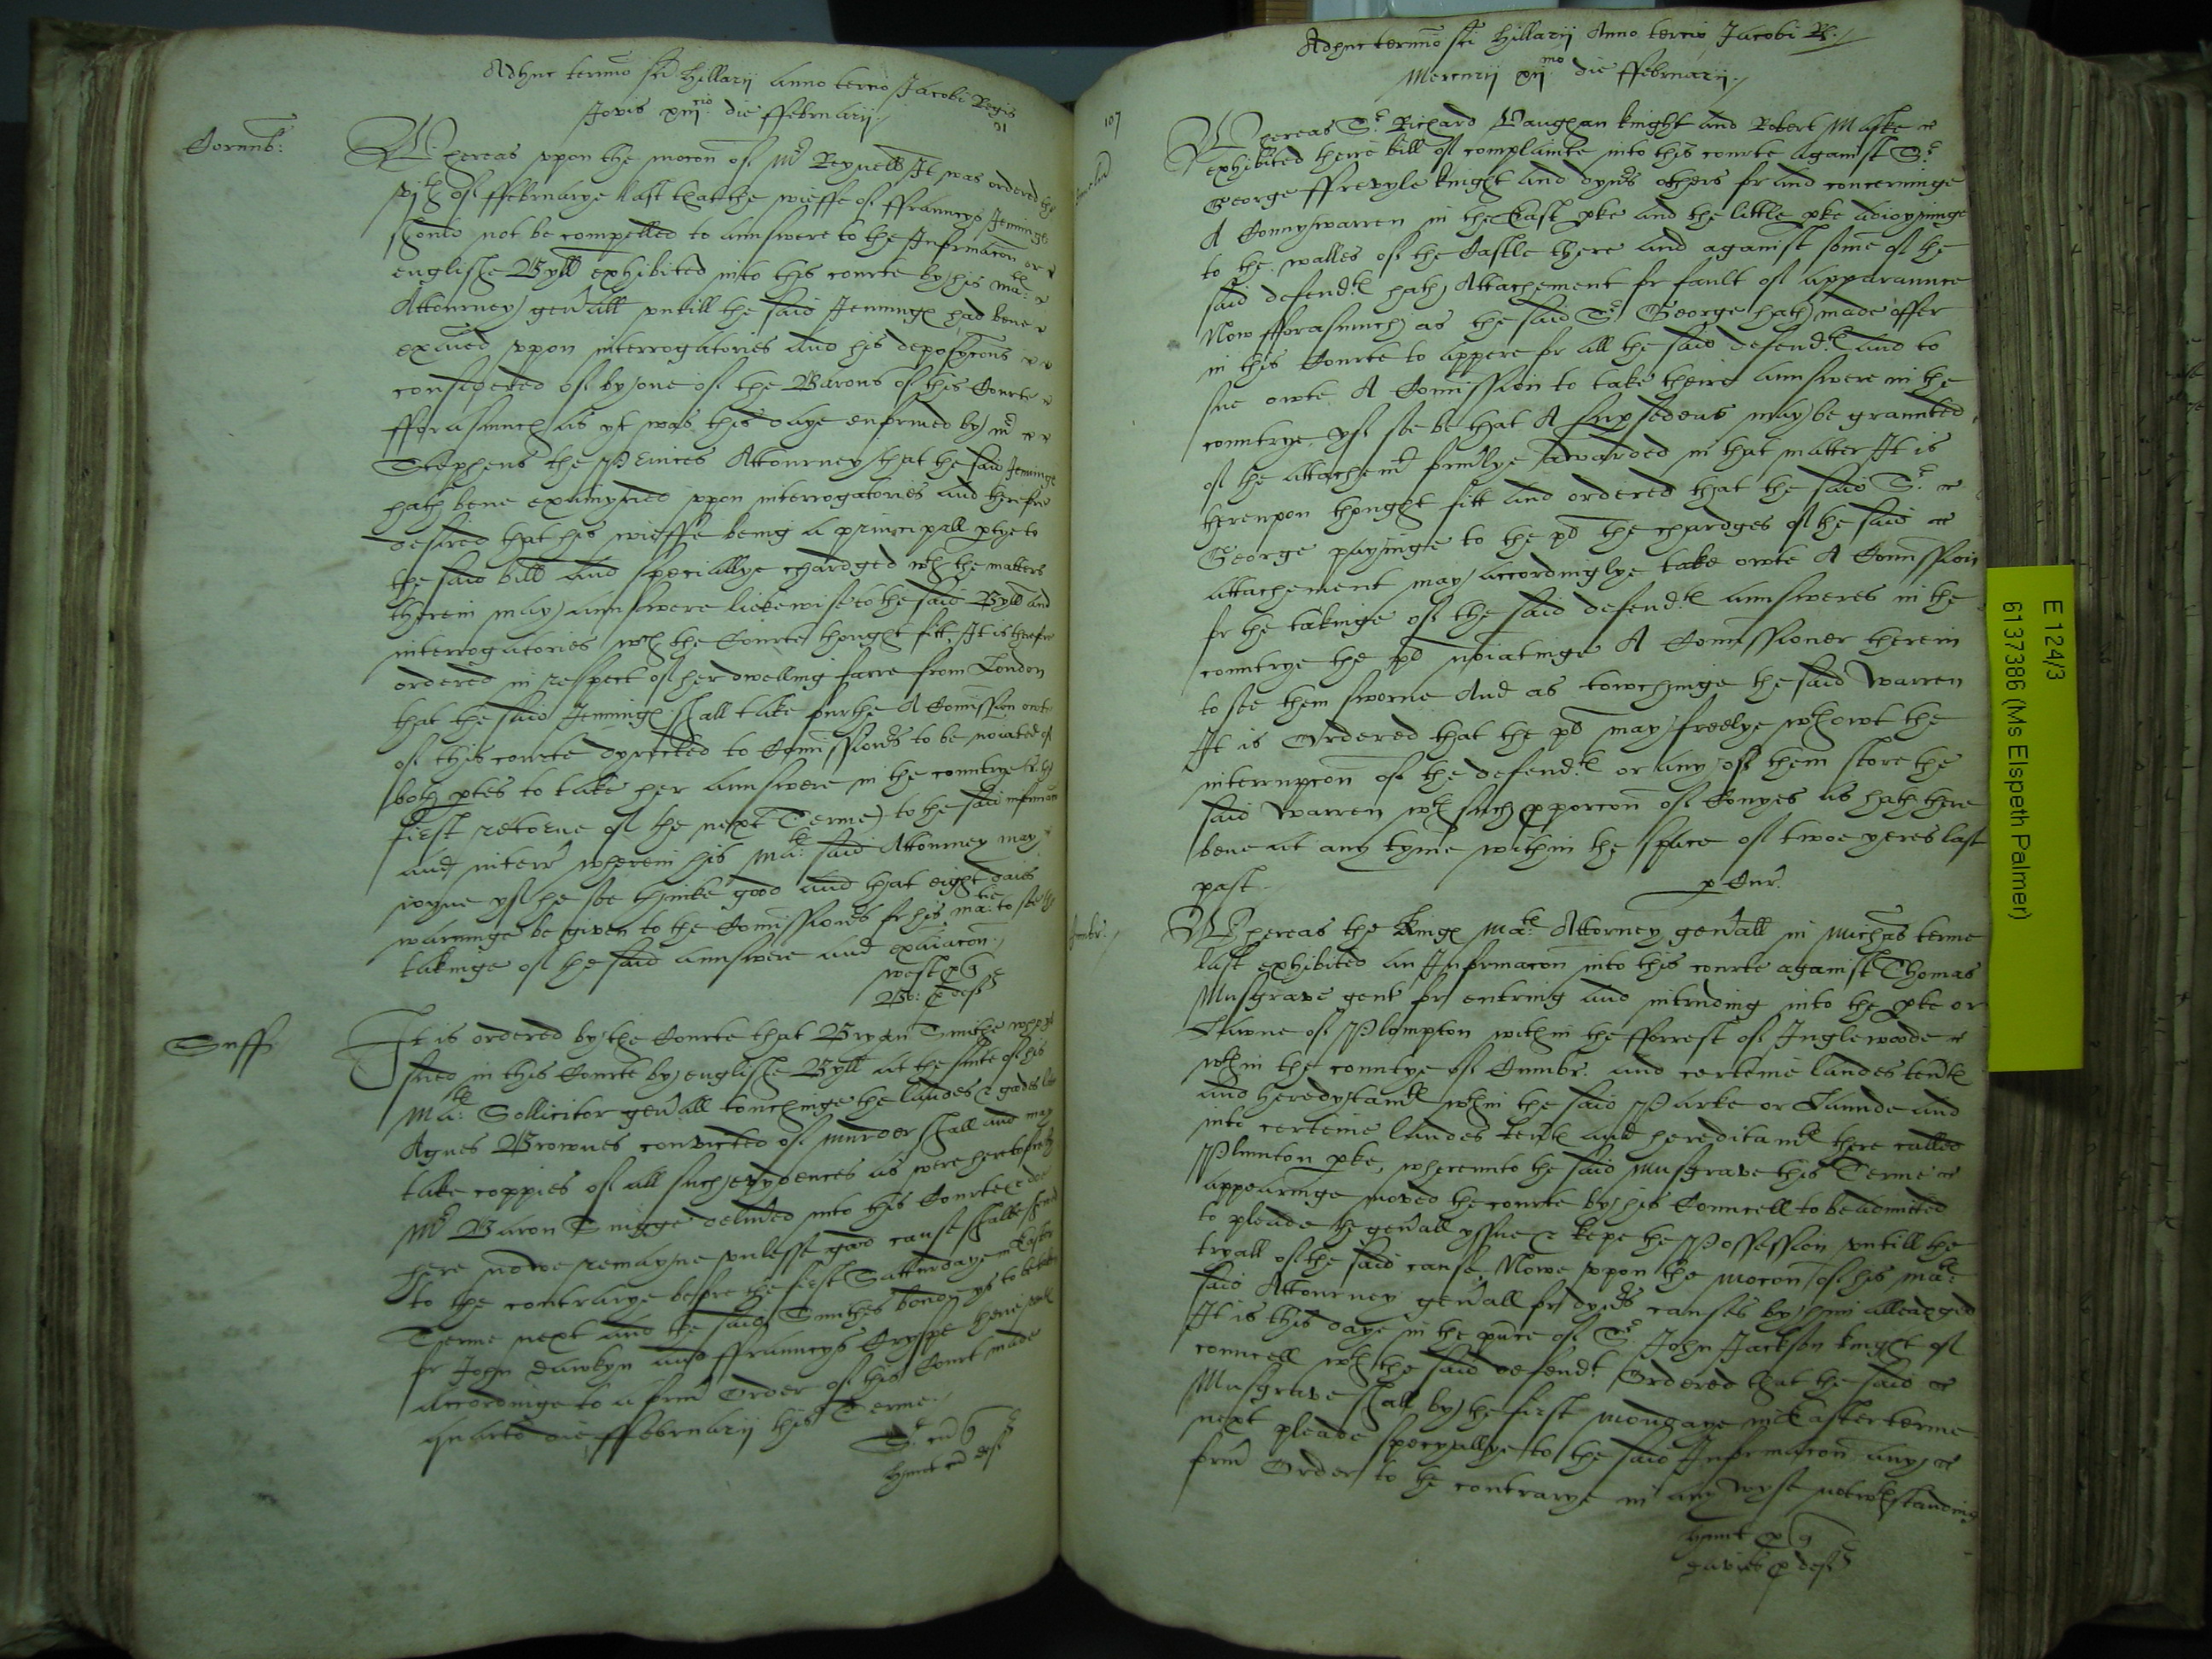 Adhuc termino sci Hillarij anno tercio Jacobi Regis
Jovis xiij cio die ffebruarij
Cornub:
Whereas vpon the mocon of Mr Reynell It was ordered the
vjth of ffebruarye last that the wieffe of ffrauncys Jenninges
should not be compelled to aunswere to the Informacon or
englishe Byll exhibited into this courte by his Mates
Attourney genall vntill the said Jenninges had bene
exaied vppon interrogatories and his deposycons
consydered of by one of the Barons of this Courte
fforasmuch as yt was this daye enformed by mr
Stephens the Princes Attourney that the said Jenninges
hath bene examyned vppon interrogatories and therefore
desired that his wieffe being a principall ptye to
the said bill and speciallye chardged wth the matters
therein may aunswere likewise to the said Byll and
interrogatories wch the Courte thought fitt, It is therefore
ordered in respect of her dwelling farre from London
that the said Jenninges shall take furthe A Comission owte
of this courte dyrected to Comissioners to be noiated of
both ptes to take her aunswere in the countrye
first retorne of the next Terme to the said informacon
and interr wherein his Mates said Attourney may
ioyne yf he soe thinke good and that eight daies
warninge be given to the Comissioners for his Matie to see the
takinge of the said aunswere and exaiacon
west p q
p deff
Suff
It is ordered by the Courte that Bryan Smithe who is
sued in this Courte by englishe Byll at the suite of his
Mates Sollicitor genall touchinge the landes & goodes late
Agnes Brownes convicted of murder shall and may
take coppies of all such evydences as were heretofore by
Mr Baron Snigge deliued into this Courte & doe
here nowe remayne vnlesse good cause shalbe shewed
to the contrarye before the first Satturdaye in Easter
Terme next and the said Smithes bond ys to be taken
for John Dawkyn and ffrauncys Crispe
accordinge to a form Order of this Court made
quarto die ffebruarij this Terme
hunt deff
107
Adhuc termino sci Hillarij Anno tercio Jacobi R:
Mercurij xij mo die ffebruarij
Whereas Sr Richard Vaughan knight and Robert Maske
exhibited there bill of complainte into this courte against Sr
George ffrevyle knight and dyurs others for and concerninge
A Connywarren in the East pke and the little pke adioyninge
to the walles of the Castle there and against some of the
said defendtes hath Attachement for fault of apparaunce
Now fforasmuch as the said Sr George hath made offer
in this Courte to appere for all the said defendtes and to
sue owte A Comission to take there aunswere in the
countrye, yf soe be that A supsedeas may be graunted
of the attachemt formlye awarded in that matter It is
therevpon thought fitt and ordered that the said Sr
George payinge to the pl the chardges of the said
attachement may accordinglye take owte A Comission
for the takinge of the said defendtes aunsweres in the
countrye the pl noiatinge A Comissioner therein
to see them sworne And as towchinge the said Warren
It is Ordered that the pl may freelye wthowt the
interrupcon of the defendtes or any of them store the
said Warren wth such pporcon of Conyes as hath there
bene at any tyme within the space of twoe yeres last
past
p Cur
Cumbr:
Whereas the Kinges Mates Attorney genall in Michas terme
last exhibited an Informacon into this courte against Thomas
Musgrave gent for entring and intruding into the pke or
Lawne of Plompton within the fforrest of Inglewoode
wthin the countye of Cumbr: and certeine landes tentes
and heredytamtes wthin the said Parke or Launde and
into certeine landes tentes and hereditamtes there called
Plumton pke, wherevnto the said Musgrave this Terme
appearinge moved the courte by his Councell to be admitted
to pleade the genall yssue & kepe the Possession vntill the
tryall of the said cause Nowe vppon the mocon of his Mates
said Attourney genall for dyurs causes by him alleadged
It is this daye in the pnce of Sr John Jackson knight of
councell wth the said defendt Ordered that the said
Musgrave shall by the first mondaye in Easter terme
next pleade specyallye to the said Informacon any
form Order to the contrarye in any wyse notwthstanding
hunt p q
Davies p deff
E 124/3
6137386 (Ms Elspeth Palmer)